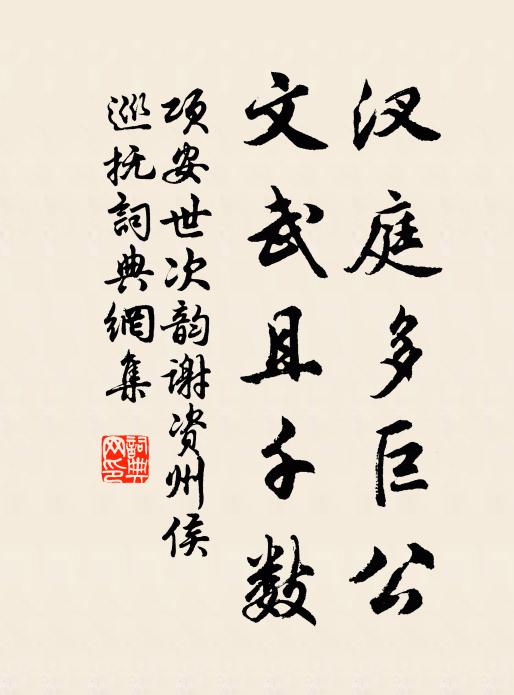 汉庭多巨公
文武且千数
项安世次韵谢资州侯
巡抚詞典網集
詞典
网印